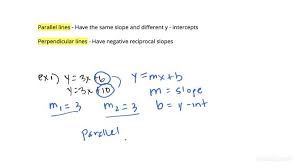 Parallel lines - Have the same slope and different y - intercepts
Perpendicular lines - Have negative reciprocal slopes
ex1) y = 3x+6 y = mx+b
y = 3x+10 m = slope
m1 = 3 m2 = 3 b = y-int
parallel